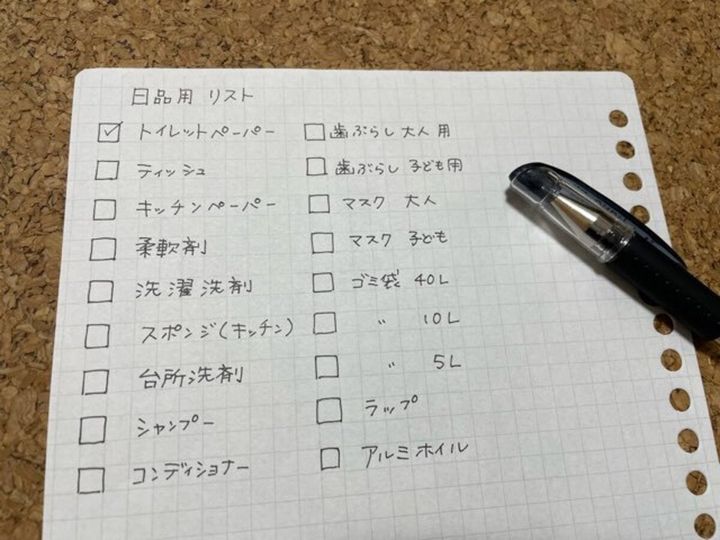 日品用 リスト
トイレットペーパー
ティッシュ
キッチンペーパー
柔軟剤
洗濯洗剤
スポンジ(キッチン)
台所洗剤
シャンプー
コンディショナー
歯ぶらし 大人用
歯ぶらし 子ども用
マスク 大人
マスク 子ども
ゴミ袋 40L
〃 10L
〃 5L
ラップ
アルミホイル